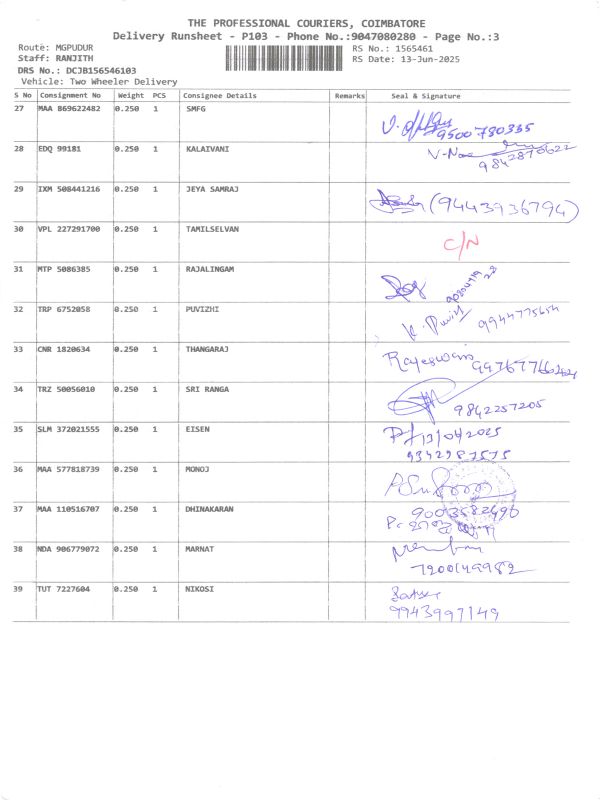 THE PROFESSIONAL COURIERS, COIMBATORE
Delivery Runsheet - P103 - Phone No.:9047080280 - Page No.:3
Route: MGPUDUR RS No.: 1565461
Staff: RANJITH RS Date: 13-Jun-2025
DRS No.: DCJB156546103
Vehicle: Two Wheeler Delivery
S No Consignment No Weight PCS Consignee Details Remarks Seal & Signature
27 MAA 869622482 0.250 1 SMFG
9500780335
28 EDQ 99181 0.250 1 KALAIVANI
9842870622
29 IXM 508441216 0.250 1 JEYA SAMRAJ
(9443936794)
30 VPL 227291700 0.250 1 TAMILSELVAN C/N
31 MTP 5086385 0.250 1 RAJALINGAM
32 TRP 6752058 0.250 1 PUVIZHI
9944775654
33 CNR 1820634 0.250 1 THANGARAJ
Rajeswari
34 TRZ 50056010 0.250 1 SRI RANGA
9842257205
35 SLM 372021555 0.250 1 EISEN
9342987575
36 MAA 577818739 0.250 1 MONOJ
37 MAA 110516707 0.250 1 DHINAKARAN 9003582496
38 NDA 906779072 0.250 1 MARNAT
7200149982
39 TUT 7227604 0.250 1 NIKOSI
9943997149